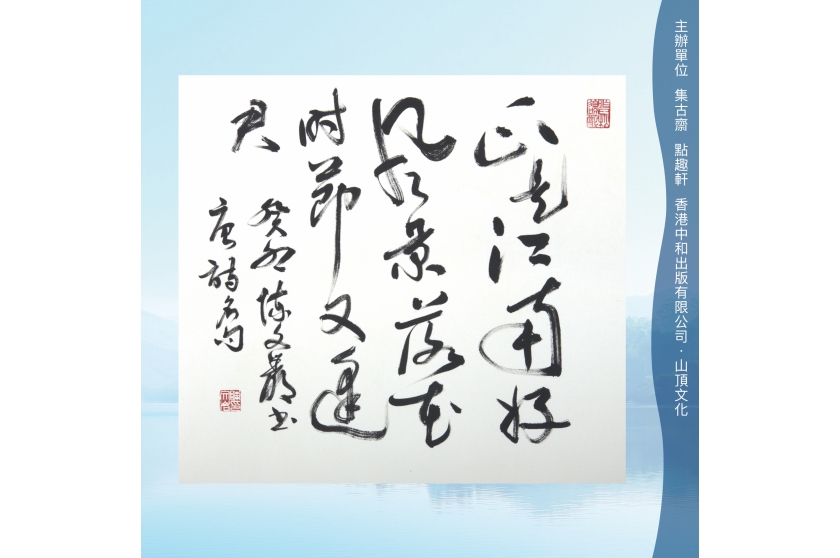 主辦單位 集古齋 點趣軒 香港中和出版有限公司·山頂文化
正是江南好
風景落花
时節又逢
君
癸卯陳文巖書
唐詩名句